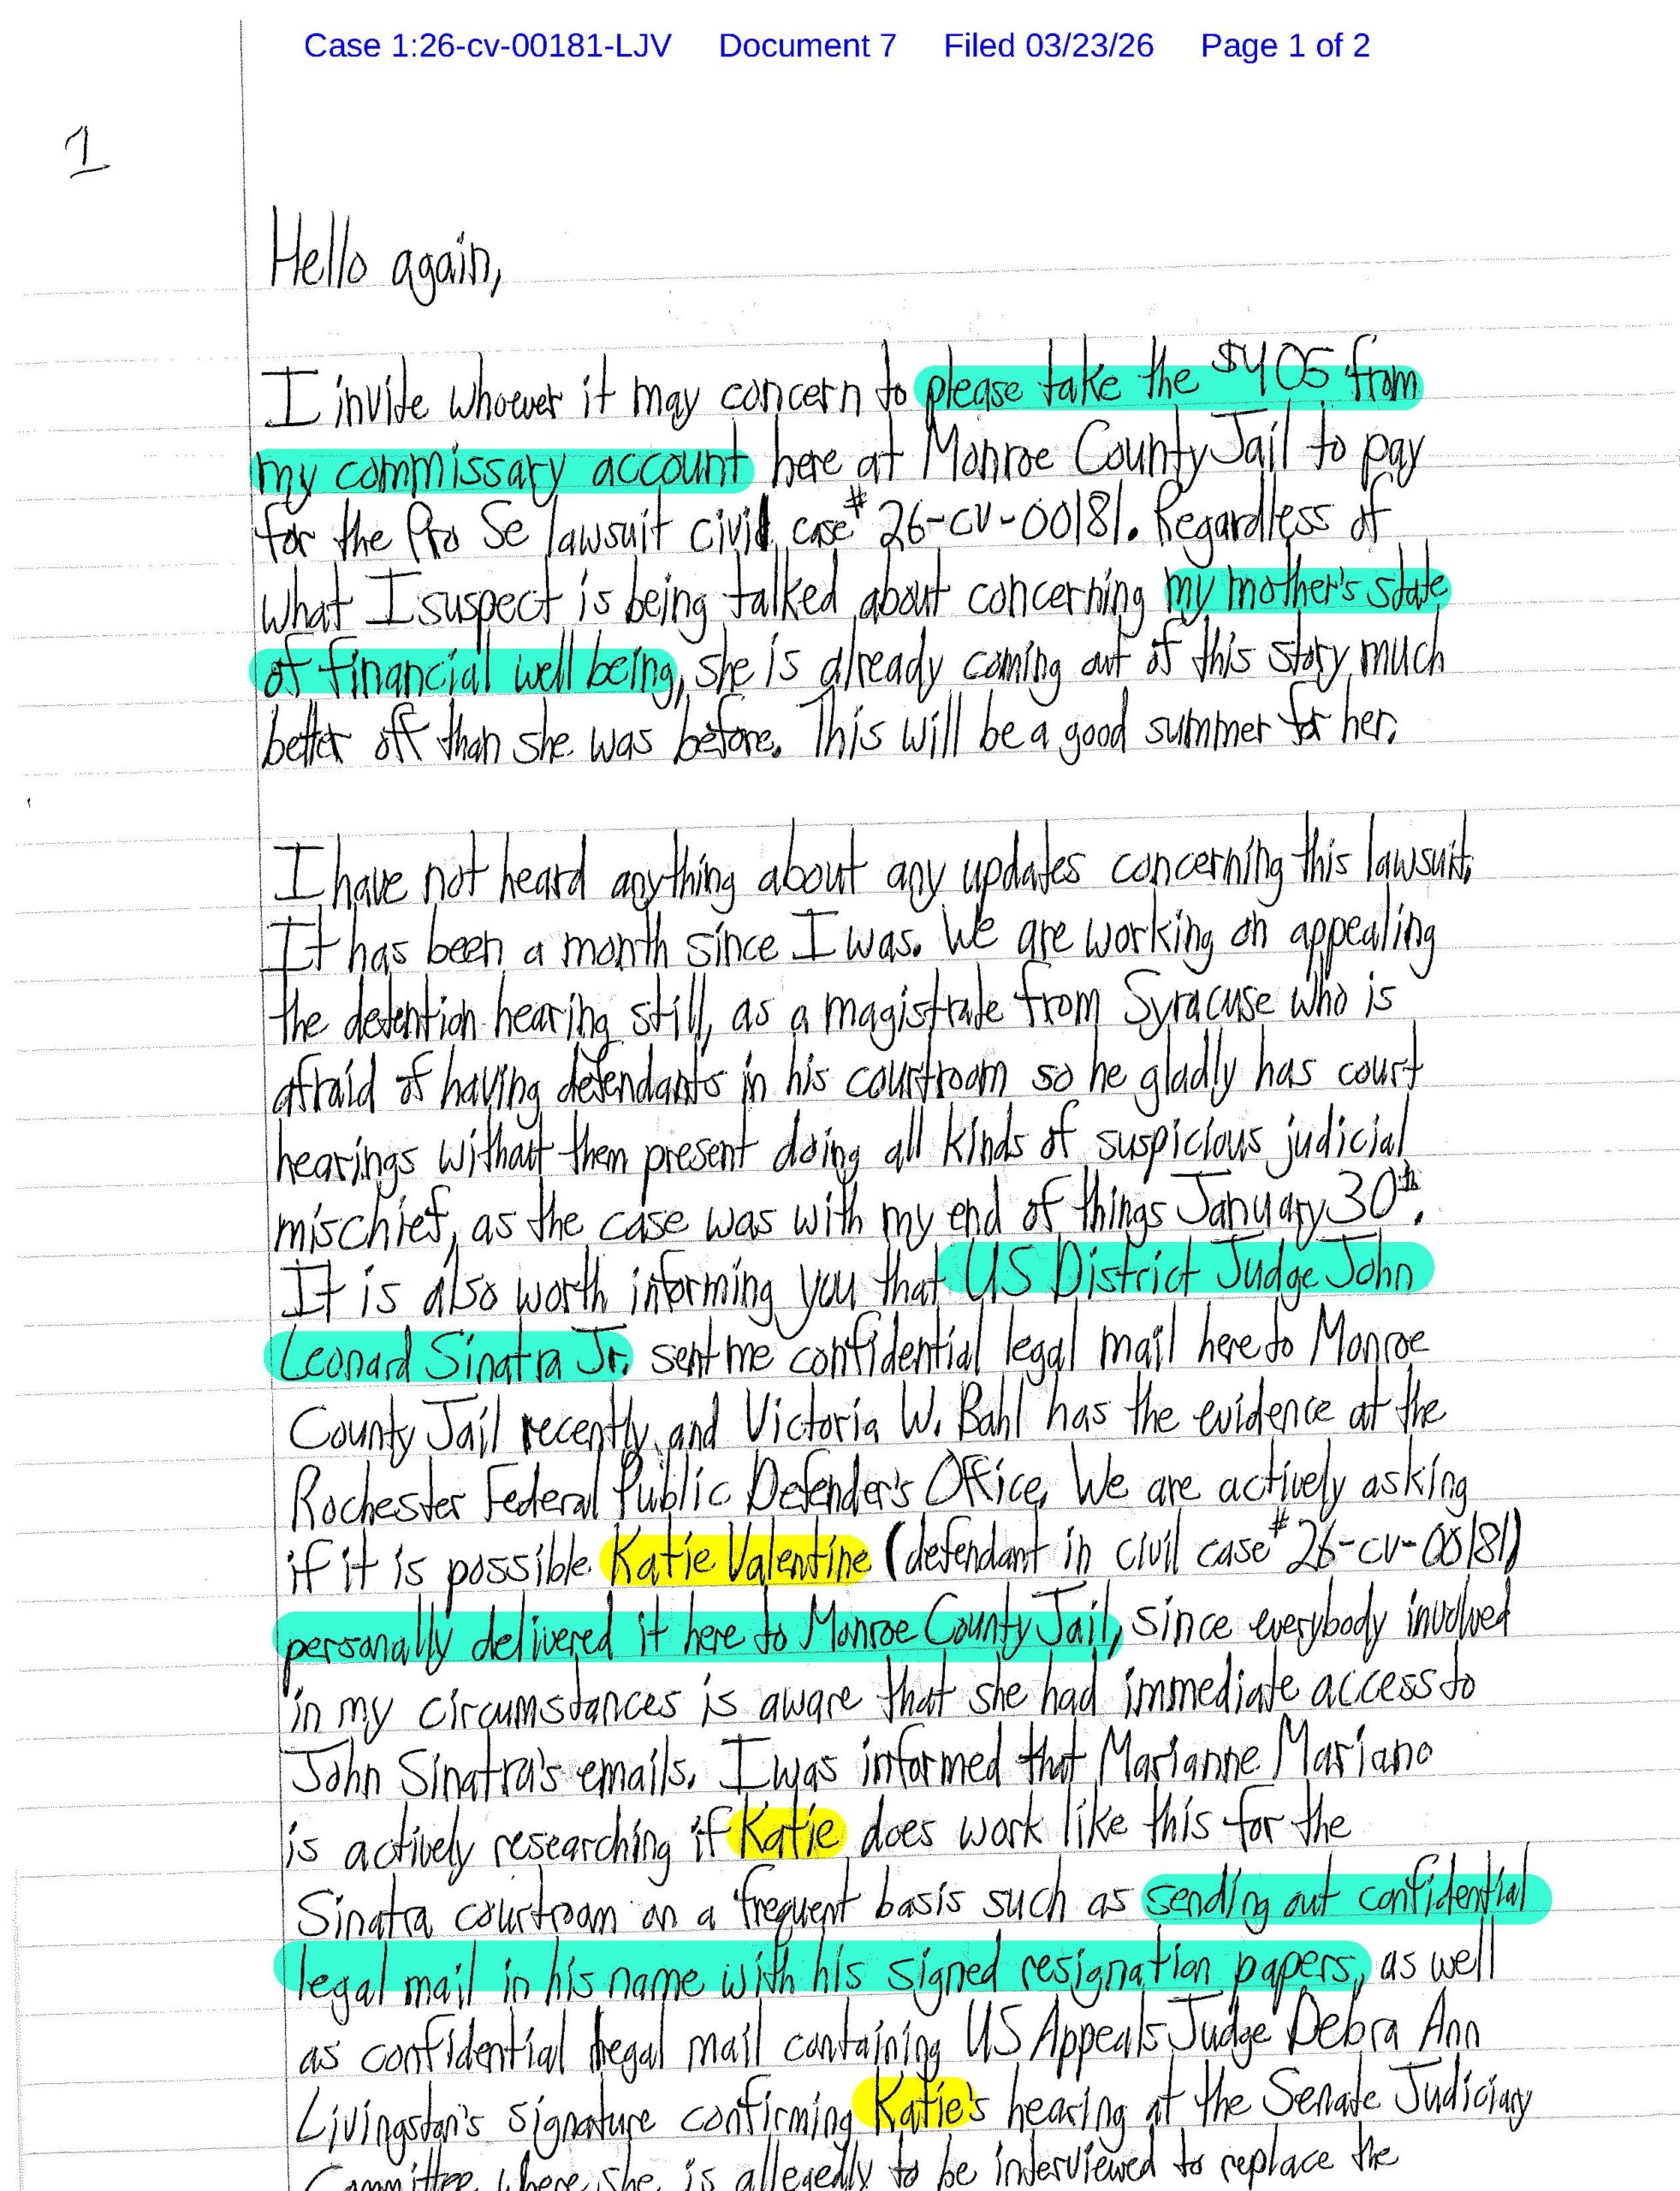 Case 1:26-cv-00181-LJV Document 7 Filed 03/23/26 Page 1 of 2
1
Hello again,
I invite whoever it may concern to please take the $405 from
my commissary account here at Monroe County Jail to pay
for the Pro Se lawsuit civil case# 26-cv-00181. Regardless of
what I suspect is being talked about concerning my mother's state
of financial well being, she is already coming out of this story much
better off than she was before. This will be a good summer for her.
I have not heard anything about any updates concerning this lawsuit.
It has been a month since I was. We are working on appealing
the detention hearing still, as a magistrate from Syracuse who is
afraid of having defendants in his courtroom so he gladly has court
hearings without them present doing all kinds of suspicious judicial
mischief, as the case was with my end of things January 30th.
It is also worth informing you that US District Judge John
Leonard Sinatra Jr. sent me confidential legal mail here to Monroe
County Jail recently and Victoria W. Bahl has the evidence at the
Rochester Federal Public Defender's Office. We are actively asking
if it is possible Katie Valentine (defendant in civil case# 26-cv-00181)
personally delivered it here to Monroe County Jail, since everybody involved
in my circumstances is aware that she had immediate access to
John Sinatra's emails. I was informed that Marianne Mariano
is actively researching if Katie does work like this for the
Sinatra courtroom on a frequent basis such as sending out confidential
legal mail in his name with his signed resignation papers, as well
as confidential legal mail containing US Appeals Judge Debra Ann
Livingston's signature confirming Katie's hearing at the Senate Judiciary
Committee where she is allegedly to be interviewed to replace the